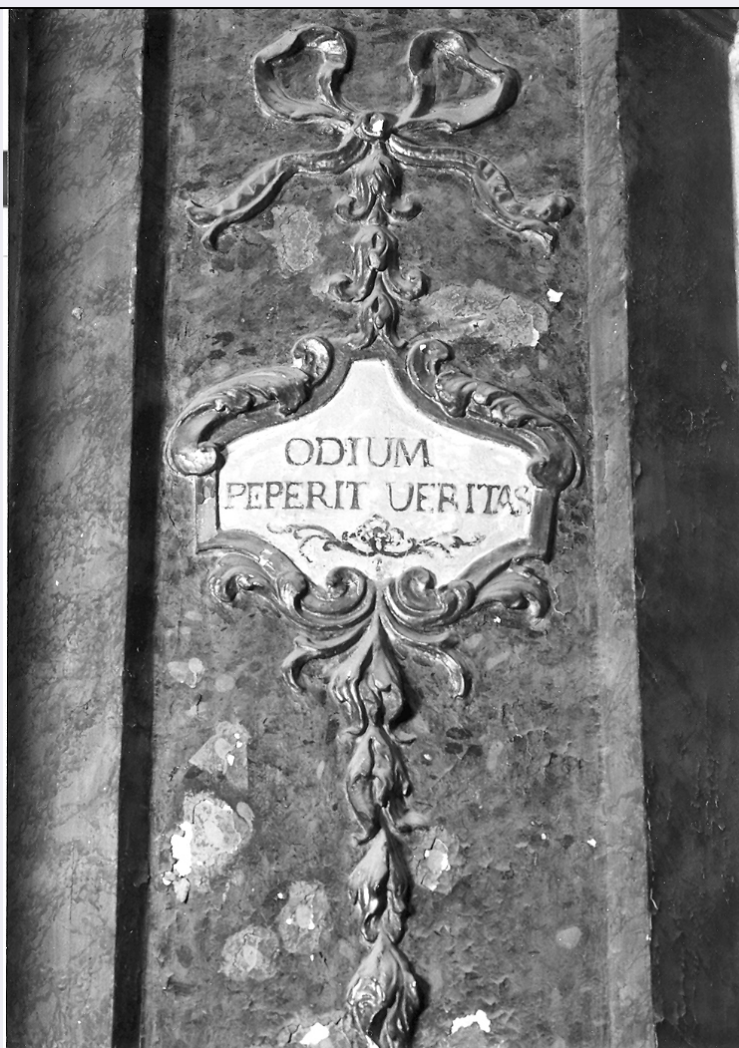 ODIUM
PEPERIT UERITAS